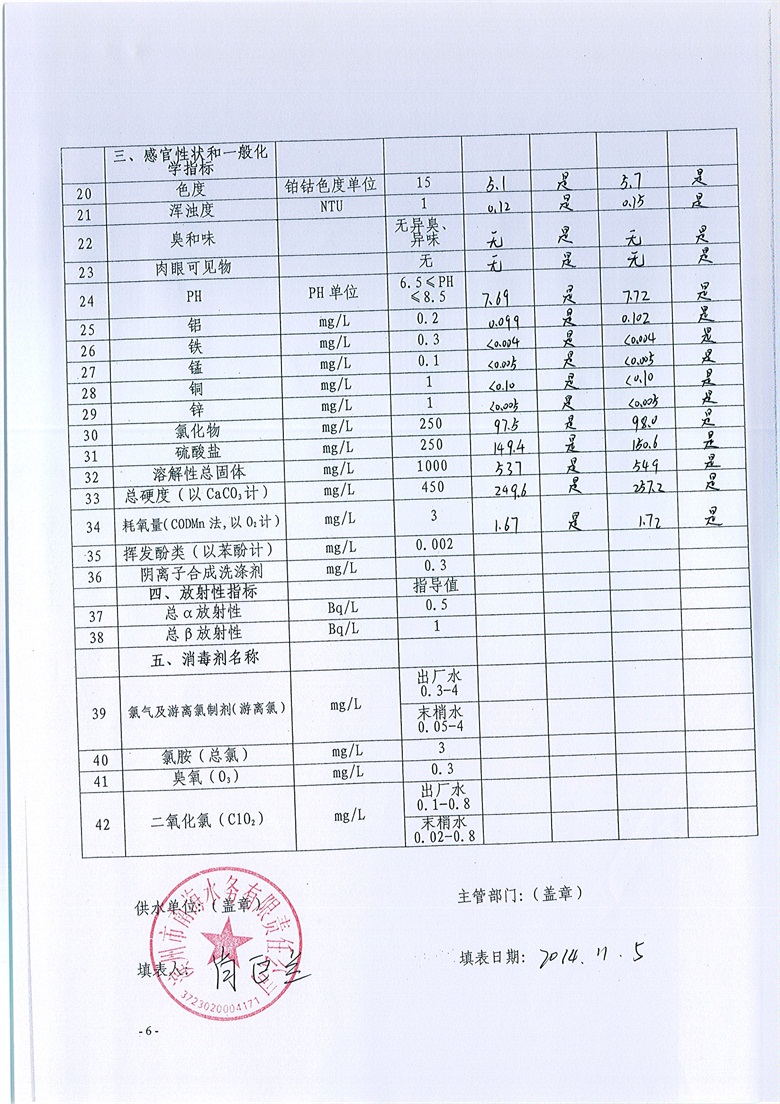 三、感官性状和一般化学指标
20 色度 铂钴色度单位 15 5.1 是 5.7 是
21 浑浊度 NTU 1 0.12 是 0.15 是
22 臭和味 无异臭、异味 无 是 无 是
23 肉眼可见物 无 无 是 无 是
24 PH PH 单位 6.5≤PH≤8.5 7.69 是 7.72 是
25 铝 mg/L 0.2 0.099 是 0.102 是
26 铁 mg/L 0.3 <0.004 是 <0.004 是
27 锰 mg/L 0.1 <0.005 是 <0.005 是
28 铜 mg/L 1 <0.10 是 <0.10 是
29 锌 mg/L 1 <0.005 是 <0.005 是
30 氯化物 mg/L 250 97.5 是 98.0 是
31 硫酸盐 mg/L 250 149.4 是 150.6 是
32 溶解性总固体 mg/L 1000 537 是 549 是
33 总硬度(以 CaCO₃计) mg/L 450 249.6 是 257.2 是
34 耗氧量(CODMn 法,以 O₂计) mg/L 3 1.67 是 1.72 是
35 挥发酚类(以苯酚计) mg/L 0.002
36 阴离子合成洗涤剂 mg/L 0.3
四、放射性指标 指导值
37 总α放射性 Bq/L 0.5
38 总β放射性 Bq/L 1
五、消毒剂名称
39 氯气及游离氯制剂(游离氯) mg/L 出厂水 0.3-4
末梢水 0.05-4
40 氯胺(总氯) mg/L 3
41 臭氧(O₃) mg/L 0.3
42 二氧化氯(ClO₂) mg/L 出厂水 0.1-0.8
末梢水 0.02-0.8
供水单位:(盖章) 主管部门:(盖章)
填表人: 填表日期: 2014.11.5
州市 海水务有限责任公司
3723020004171
-6-